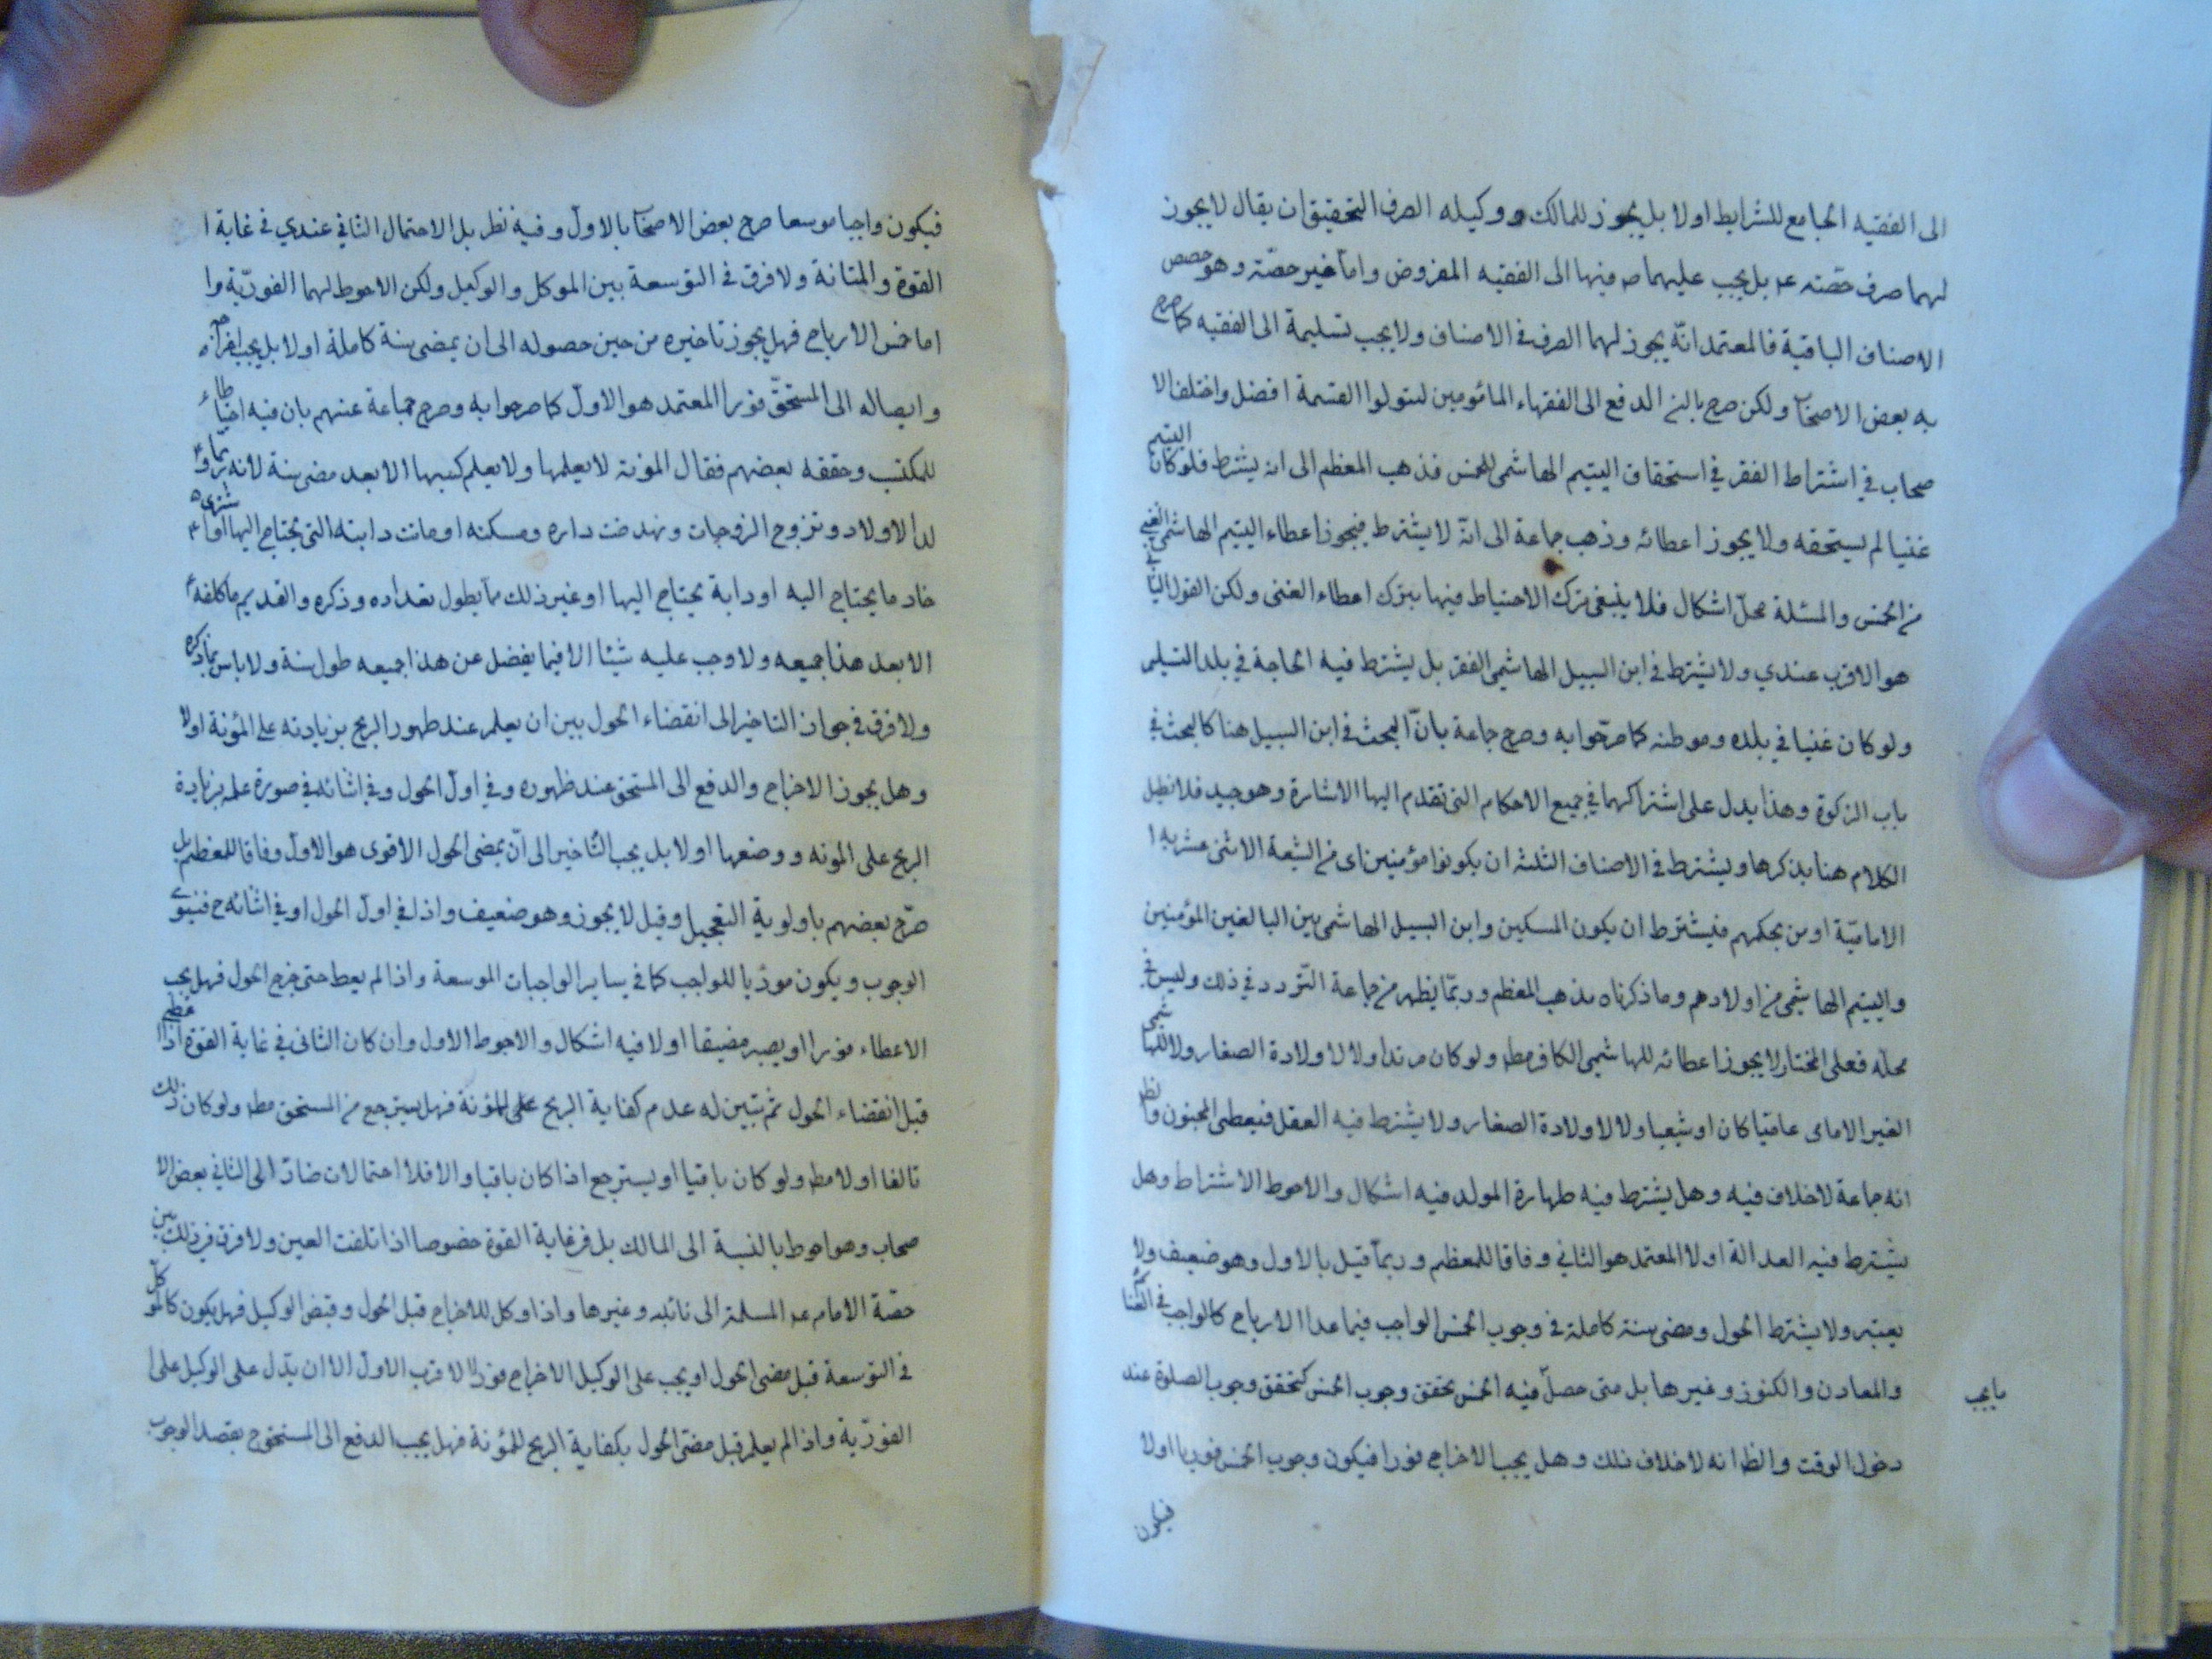 الى الفقيه الجامع للشرايط اولا بل يجوز للمالك ووكيله الصرف التحقيق ان يقال لا يجوز
لهما صرف حصّته عم بل يجب عليهما صرفها الى الفقيه المفروض واما غير حصّته وهو حصص
الاصناف الباقية فالمعتمد انّه يجوز لهما الصرف في الاصناف ولا يجب تسليمة الى الفقيه كما صرح
به بعض الاصحاب ولكن صرح بان الدفع الى الفقهاء المأمومين ليتولوا القسمة افضل واختلف الا
صحاب في اشتراط الفقر في استحقاق اليتيم الهاشمى للخمس فذهب المعظم الى انه يشترط فلو كان اليتيم
غنيا لم يستحقه ولا يجوز اعطائه وذهب جماعة الى انّه لا يشترط فيجوز اعطاء اليتيم الهاشمى الغنى
من الخمس والمسئلة محلّ اشكال فلا ينبغى ترك الاحتياط فيها بترك اعطاء الغنى ولكن القول الثانى
هو الاقرب عندي ولا يشترط في ابن السبيل الهاشمى الفقر بل يشترط فيه الحاجة في بلد التسليم
ولو كان غنيا في بلده وموطنه كما صرّحوا به وصرح جماعة بانّ البحث في ابن السبيل هنا كالبحث في
باب الزكوة وهذا يدل على اشتراكهما في جميع الاحكام التى تقدم اليها الاشارة وهو جيد فلا نطيل
الكلام هنا بذكرها ويشترط في الاصناف الثلثه ان يكونوا مؤمنين اى من الشيعة الاثنى عشريه ا
الاماميّة او من بحكمهم فيشترط ان يكون المسكين وابن السبيل الهاشمى بين البالغين المؤمنين
واليتيم الهاشمى من اولادهم وما ذكرناه مذهب المعظم وربّما يظهر من جماعة التّردد في ذلك وليس في
محلّه فعلى المختار لا يجوز اعطائه للهاشمى الكافر مطه ولو كان مرتدا ولا لاولادة الصغار ولا للهاشمى
الغير الامامى عاميّا كان او شيعيا ولا لاولادة الصغار ولا يشترط فيه العقل فيعطى المجنون والظ
انه جماعة لا خلاف فيه وهل يشترط فيه طهارة المولد فيه اشكال والاحوط الاشتراط وهل
يشترط فيه العدالة اولا المعتمد هو الثاني وفاقا للمعظم وربّما قيل بالاول وهو ضعيف ولا
يعتبر ولا يشترط الحول ومضى سنة كاملة في وجوب الخمس الواجب فيما عدا الارباح كالواجب في الغنائم
والمعادن والكنوز وغيرها بل متى حصلّ فيه الخمس تحقق وجوب الخمس كتحقق وجوب الصلوة عند
ما يجب
دخول الوقت والظ انه لا خلاف ذلك وهل يجب الاخراج فورا فيكون وجوب الخمس فوريا اولا
فيكون
فيكون واجبا موسعا صرح بعض الاصحاب بالاول وفيه نظر بل الاحتمال الثاني عندي في غاية ا
القوة والمتانة ولا فرق في التوسعة بين الموكل والوكيل ولكن الاحوط لهما الفوريّة وا
اما خمس الارباح فهل يجوز تاخيره من حين حصوله الى ان يمضى سنة كاملة اولا بل يجب اخراجه
وايصاله الى المستحقّ فورا المعتمد هو الاول كما صرحوا به وصرح جماعة عنهم بان فيه احتياطا
للمكتسب وحققه بعضهم فقال المؤنة لا يعلمها ولا يعلم كسبها الا بعد مضى سنة لانه ربّما و
لد الاولاد وتزوج الزوجات ونهدمت داره ومسكنه او ماتت دابته التى يحتاج اليها او اشترى
خادما يحتاج اليه او دابة يحتاج اليها او غير ذلك ممّا يطول تعداده وذكره والقديم ما كلفه
الا بعد هذا جميعه ولا وجب عليه شيئا الا فيما يفضل عن هذا جميعه طول سنة ولا باس بما ذكره
ولا فرق في جواز التاخير الى انقضاء الحول بين ان يعلم عند ظهور الربح بزيادته على المؤنة اولا
وهل يجوز الاخراج والدفع الى المستحق عند ظهوره وفي اول الحول وفي اثنائه في صورة علمه بزيادة
الربح على المونه ووضعها اولا بل يجب التّاخير الى انّ يمضى الحول الاقوى هو الاول وفاقا للمعظم بل
صرّح بعضهم باولوية التعجيل وقيل لا يجوز وهو ضعيف واذا في اول الحول او في اثنائه ح فينوى
الوجوب ويكون مؤدّيا للواجب كما في ساير الواجبات الموسعة واذا لم يعط حتى خرج الحول فهل يجب
الاعطاء فورا او يصير مضيقا اولا فيه اشكال والاحوط الاول وان كان الثانى في غاية القوة اذا اعطى
قبل انقضاء الحول ثم تبيّن له عدم كفاية الربح على المؤنة فهل يسترجع من المستحق مطه ولو كان ذلك
تالفا اولا مطه ولو كان باقيا او يسترجع اذا كان باقيا والا فلا احتمالات صار الى الثاني بعض الا
صحاب وهو احوط بالنسبة الى المالك بل في غاية القوة خصوصا اذا تلفت العين ولا فرق في ذلك بين
حصّة الامام عم المسلمة الى نائبه وغيرها واذا وكل للاخراج قبل الحول وقبض الوكيل فهل يكون كالموكل
في التوسعة قبل مضى الحول او يجب على الوكيل الاخراج فورا الاقرب الاول الا ان يدّل على الوكيل على ا
الفوريّة واذا لم يعلم قبل مضىّ الحول بكفاية الربح للمؤنة فهل يجب الدفع الى المستحق ح بقصد الوجوب